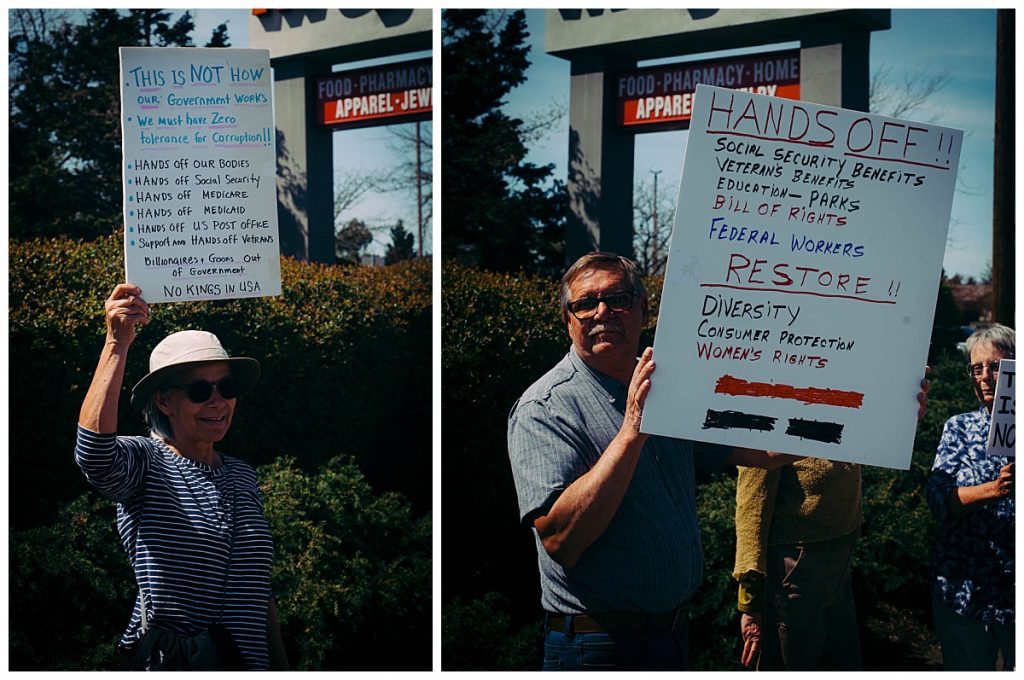 • THIS IS NOT HOW
OUR GOVERNMENT WORKS
• WE MUST HAVE ZERO
tolerance for CORRUPTION!!
• HANDS OFF OUR BODIES
• HANDS OFF SOCIAL SECURITY
• HANDS OFF MEDICARE
• HANDS OFF MEDICAID
• HANDS OFF US POST OFFICE
• SUPPORT AND HANDS OFF VETERANS
BILLIONAIRES + GOONS OUT
OF GOVERNMENT
NO KINGS IN USA
FOOD · PHARMACY
APPAREL · JEW
FOOD · PHARMACY · HOME
HANDS OFF !!
SOCIAL SECURITY BENEFITS
VETERANS BENEFITS
EDUCATION – PARKS
BILL OF RIGHTS
FEDERAL WORKERS
RESTORE !!
DIVERSITY
CONSUMER PROTECTION
WOMEN'S RIGHTS
T
IS
NO